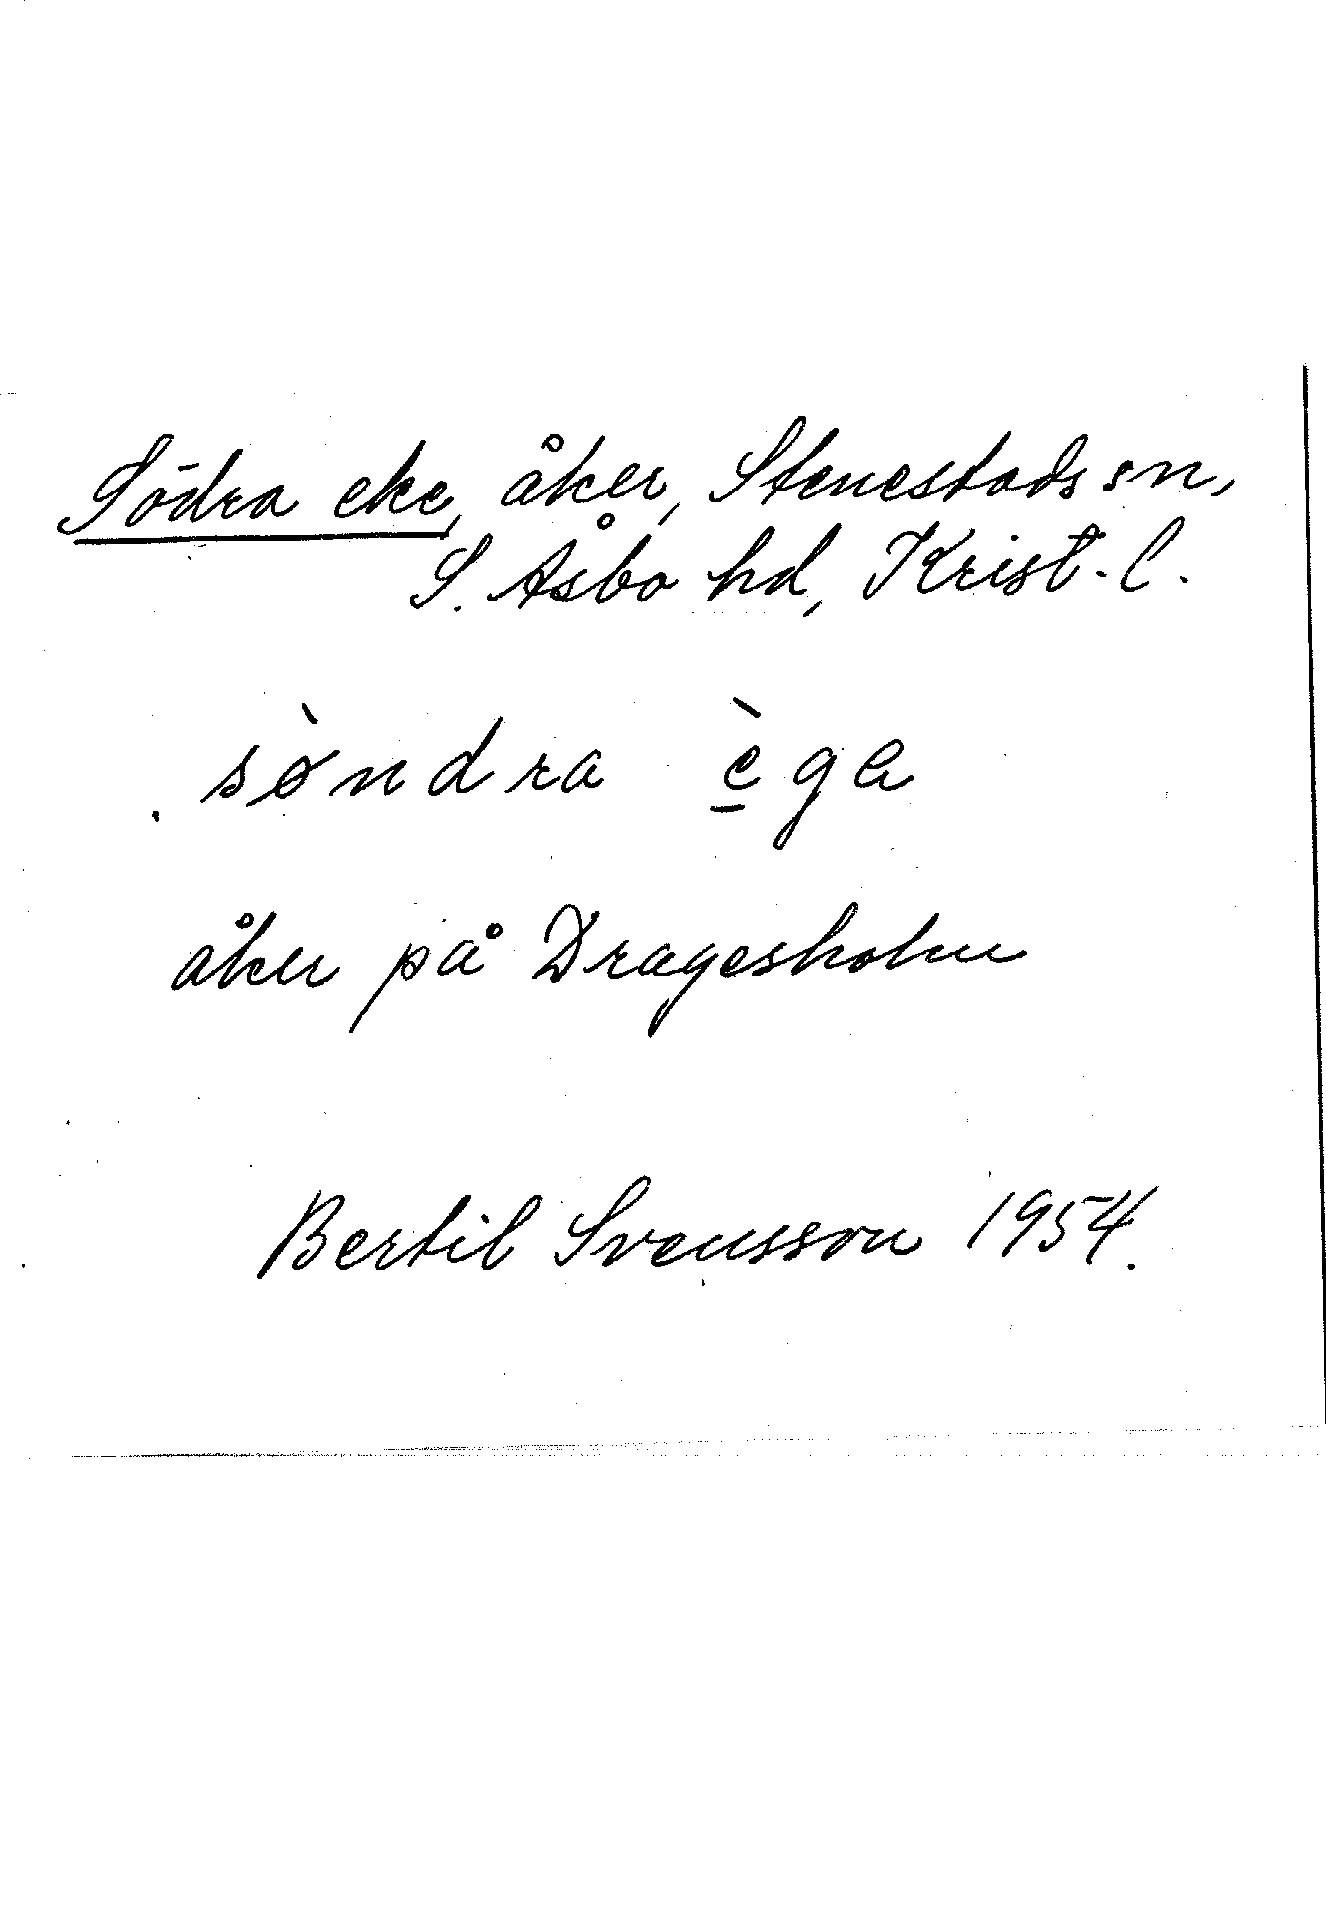 Södra eke, åker, Stenestads sn,
S. Åsbo hd, Krist. l.
sø̀ndra è̱ga
åker på Dragesholm
Bertil Svensson 1954.